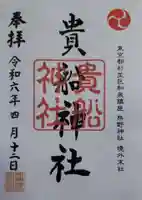 東京都杉並区和泉鎮座 熊野神社 境外末社
貴船神社
貴船神社
奉拝
令和六年四月十三日